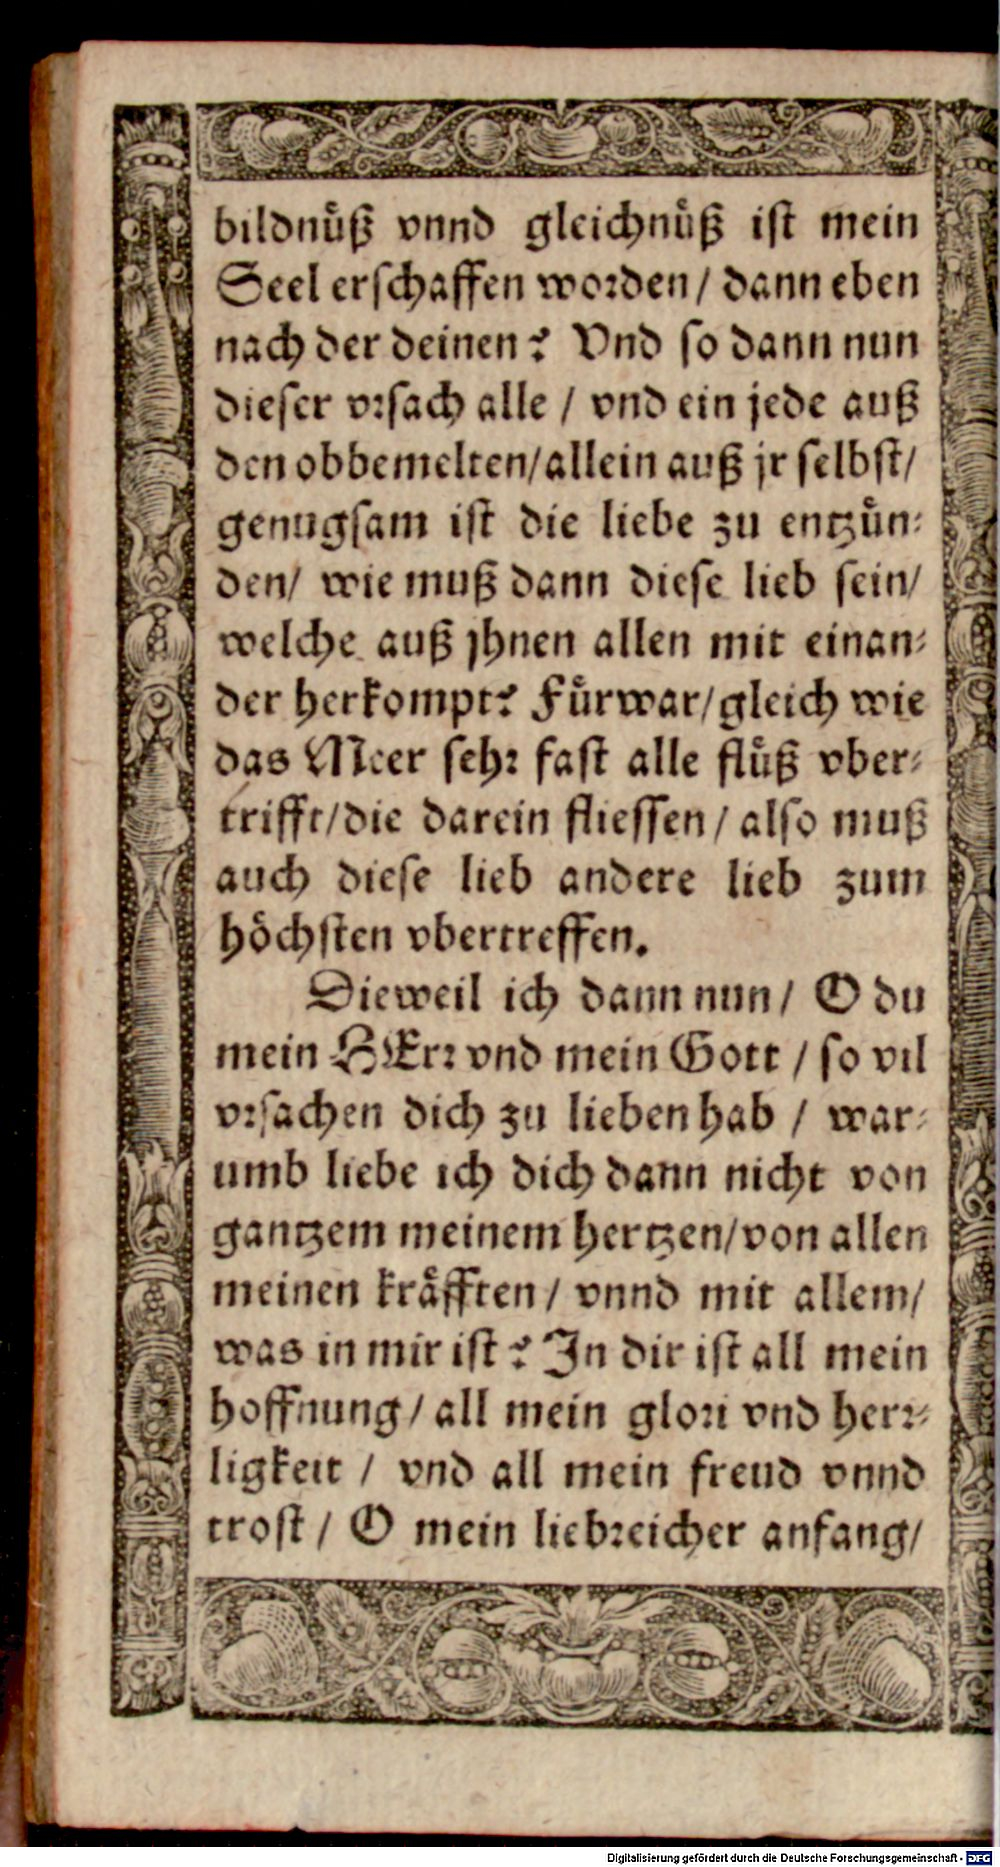 bildnuͤß vnnd gleichnuͤß ist mein
Seel erschaffen worden / dann eben
nach der deinen? Vnd so dann nun
dieser vrsach alle / vnd ein jede auß
den obbemelten/allein auß jr selbst/
genugsam ist die liebe zu entzuͤn-
den/ wie muß dann diese lieb sein/
welche auß jhnen allen mit einan-
der herkompt? Fuͤrwar/gleich wie
das Meer sehr fast alle fluͤß vber-
trifft/die darein fliessen / also muß
auch diese lieb andere lieb zum
hoͤchsten vbertreffen.
Dieweil ich dann nun / O du
mein HErr vnd mein Gott / so vil
vrsachen dich zu lieben hab / war-
umb liebe ich dich dann nicht von
gantzem meinem hertzen/von allen
meinen kraͤfften / vnnd mit allem/
was in mir ist? In dir ist all mein
hoffnung / all mein glori vnd herr-
ligkeit / vnd all mein freud vnnd
trost / O mein liebreicher anfang/
Digitalisierung gefördert durch die Deutsche Forschungsgemeinschaft - DFG